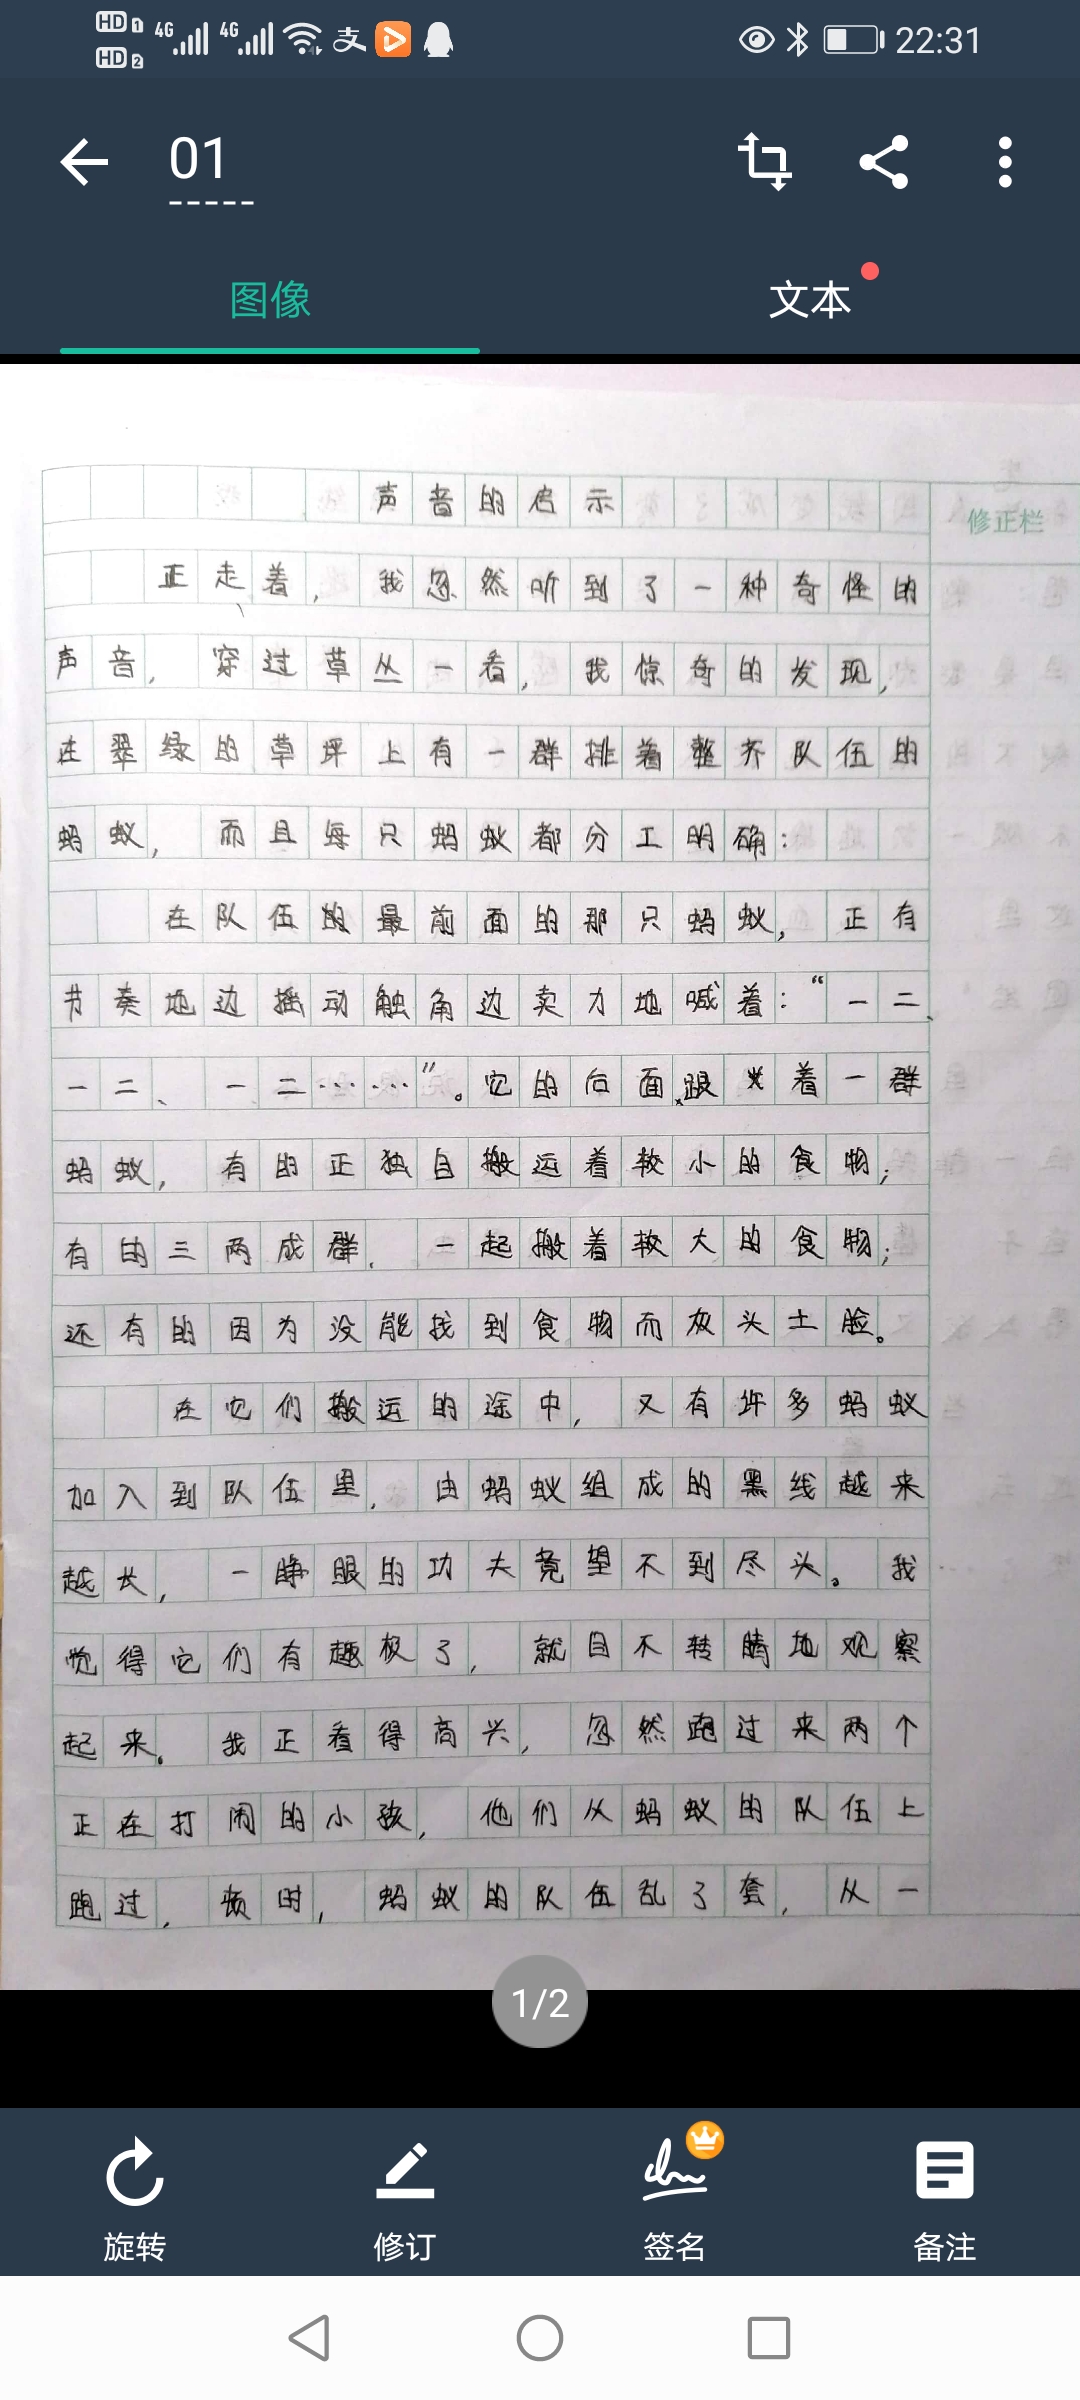 HD 1 4G 4G 支 22:31
HD 2
01
图像 文本
声音的启示
修正栏
正走着，我忽然听到了一种奇怪的
声音，穿过草丛一看，我惊奇的发现，
在翠绿的草坪上有一群排着整齐队伍的
蚂蚁，而且每只蚂蚁都分工明确：
在队伍的最前面的那只蚂蚁，正有
节奏地边摇动触角边卖力地喊着：“一二、
一二、一二……”。它的后面跟着一群
蚂蚁，有的正独自搬运着较小的食物；
有的三两成群，一起搬着较大的食物；
还有的因为没能找到食物而灰头土脸。
在它们搬运的途中，又有许多蚂蚁
加入到队伍里，由蚂蚁组成的黑线越来
越长，一睁眼的功夫竟望不到尽头。我
觉得它们有趣极了，就目不转睛地观察
起来。我正看得高兴，忽然跑过来两个
正在打闹的小孩，他们从蚂蚁的队伍上
跑过，顿时，蚂蚁的队伍乱了套，从一
1/2
旋转 修订 签名 备注